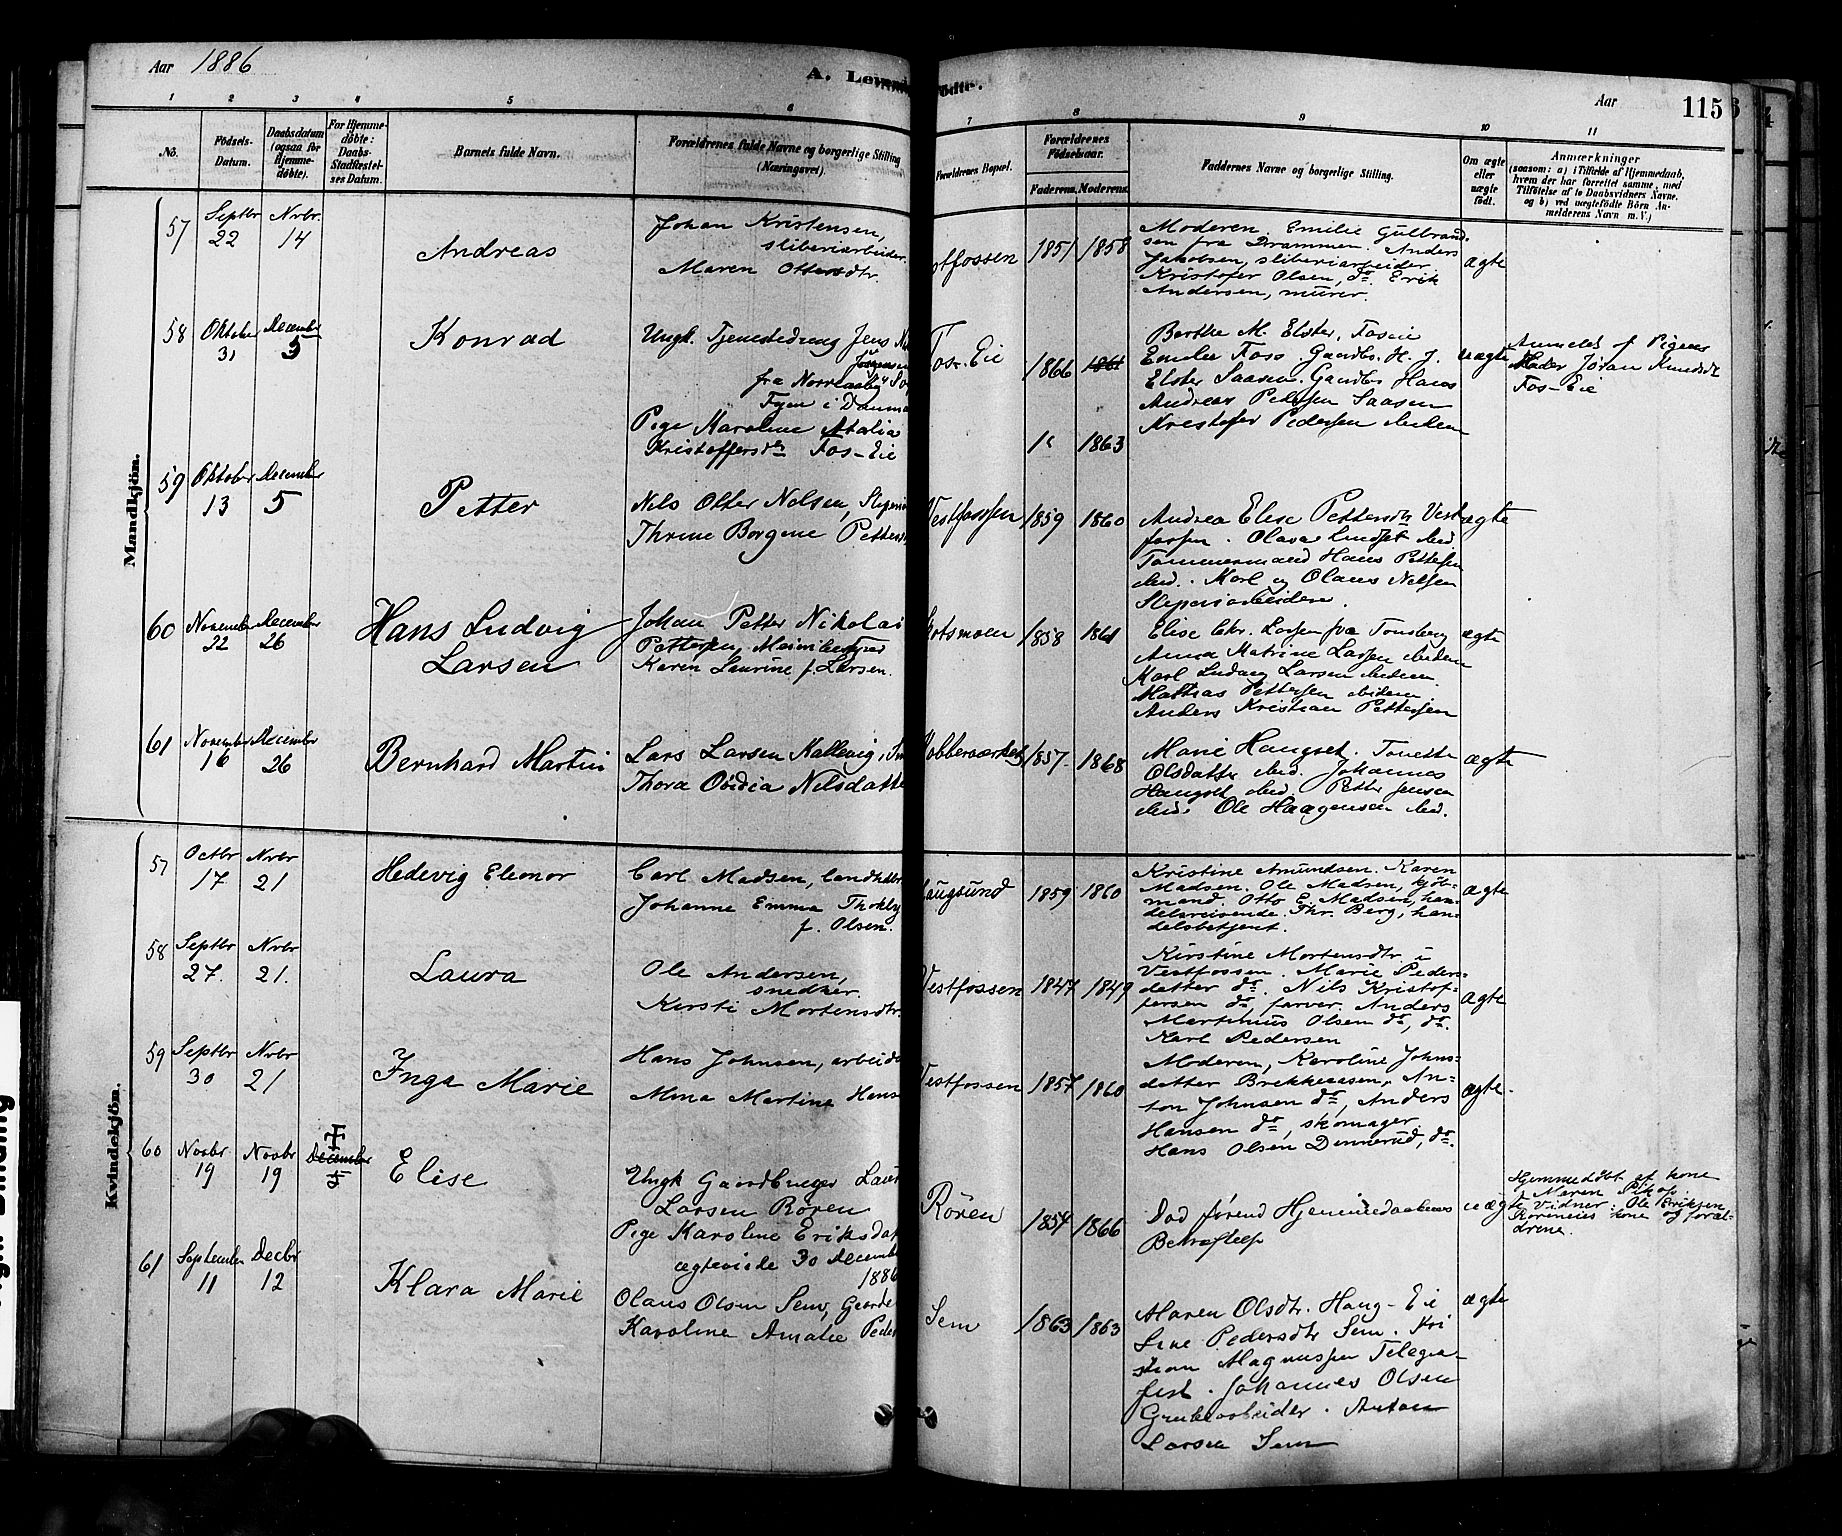 Aar 1886
A. Levende
födte.
Aar
115
1 2 3 4 5 6 7 8 9 10 11
No.
Födsels-
Datum.
Daabsdatum
(ogsaa for
Hjemme-
döbte).
For Hjemme-
döbte:
Daabs-
Stadfæstel-
ses Datum.
Barnets fulde Navn.
Forældrenes fulde Navne og borgerlige Stilling
(Næringsvei).
Forældrenes Bopæl.
Forældrenes
Födselsaar.
Faderens. Moderens.
Faddernes Navne og borgerlige Stilling.
Om ægte
eller
uægte
födt.
Anmærkninger
(saasom: a) i Tilfælde af Hjemmedaab,
hvem der har forrettet samme, med
Tilföielse af to Daabsvidners Navne,
og b) ved uægtefödte Börn An-
melderens Navn m. V.)
Mandkjön.
57
Septbr
22
Nvbr.
14
Andreas
Johan Kristensen,
sliberiarbeider.
Maren Ottersdtr.
stfossen
1851 1858
Moderen. Emilie Gulbrand-
sen fra Drammen. Anders
Jakobsen, sliberiarbeider
Kristofer Olsen, do. Erik
Andersen, murer.
ægte
58
Oktober
31
December
5
Konrad
Ungk. Tjenestedreng Jens
Jörgensen
fra Norreaaby
Fyen i Danma
Pige Karoline Atalia
Kristoffersdtr Fos-Eie
Fos-Eie
1866 1861
1863
Berthe M. Elster, Foseie
Emilie Foss. Gaardbr. H. J.
Elster Saasen. Gaardbr Hans
Andreas Pedersen Saasen
Kristofer Pedersen ibidem
uægte
Anmeldt af Pigens
Moder Jöran Knudsdt
Fos-Eie
59
Oktober
13
December
5
Petter
Nils Otter Nelsen,
Thrine Borgene Petters
Vestfossen
1859 1860
Andrea Elise Pettersdtr Vest
fossen. Olava Lindset ibid
Tömmermand Hans Pettersen
ibid. Karl og Olaus Nelsen
Sliperiarbeidere.
ægte
60
November
22
December
26
Hans Ludvig
Larsen
Johan Petter Nikolai
Pettersen,
Karen Laurine f. Larsen.
otsmoen
1858 1861
Elise Chr. Larsen fra Tonsberg
Anna Katrine Larsen ibidem
Karl Ludvig Larsen ibidem.
Mathias Pettersen ibidem
Anders Kristian Pettersen
ægte
61
November
16
December
26
Bernhard Martin
Lars Larsen Kallevig,
Thora Ovidia Nilsdatte
obberværket
1857 1868
Marie Haugset. Tonette
Olsdatter ibid. Johannes
Haugset ibid. Petter Jensen
ibid. Ole Haagensen ibid.
ægte
Kvindekjön.
57
Octbr
17
Nvbr
21
Hedevig Eleonor
Carl Madsen, landhdlr
Johanne Emma
f. Olsen.
augsund
1859 1860
Kristine Amundsen. Karen
Madsen. Ole Madsen, kjöb-
mand. Otto E. Madsen, han-
delsreisende. Thr. Berg, han-
delsbetjent.
ægte
58
Septbr
27.
Nvbr
21.
Laura
Ole Andersen,
snedker.
Kirsti Mortensdtr.
Vestfossen
1847 1849
Kirstine Mortensdtr. i
Vestfossen. Marie Peders-
datter do. Nils Kristof-
fersen do, farver. Anders
Martinius Olsen do, do.
Karl Pedersen
ægte
59
Septbr
30
Nvbr
21
Inga Marie
Hans Johnsen, arbeid
Mina Martine Hans
Vestfossen
1857 1860
Moderen, Karoline Johns-
datter Brekkeaasen. An-
ton Johnsen do, Anders
Hansen do, skomager.
Hans Olsen Dennerud, do.
ægte
60
Novbr
19
Novbr
19
December
Elise
Ungk Gaardbruger
Larsen Rören
Pige Karoline Eriksdat
ægteviede 30 Decembe
1886
Rören
1854 1866
Död förend Hjemmedaabens
Bekræftelse
uægte
Hjemmedöbt af kone
Maren
Vidner. Ole Eriksen
kone og foræl-
drene.
61
September
11
Decbr
12
Klara Marie
Olaus Olsen Sem,
Karoline Amalie Peder
Sem
1863 1863
Maren Olsdtr. Haug-Eie
Line Pedersdtr Sem. Kri
stian Magnussen Telegra-
fist. Johannes Olsen
Grubearbeider. Anton
Larsen Sem
ægte